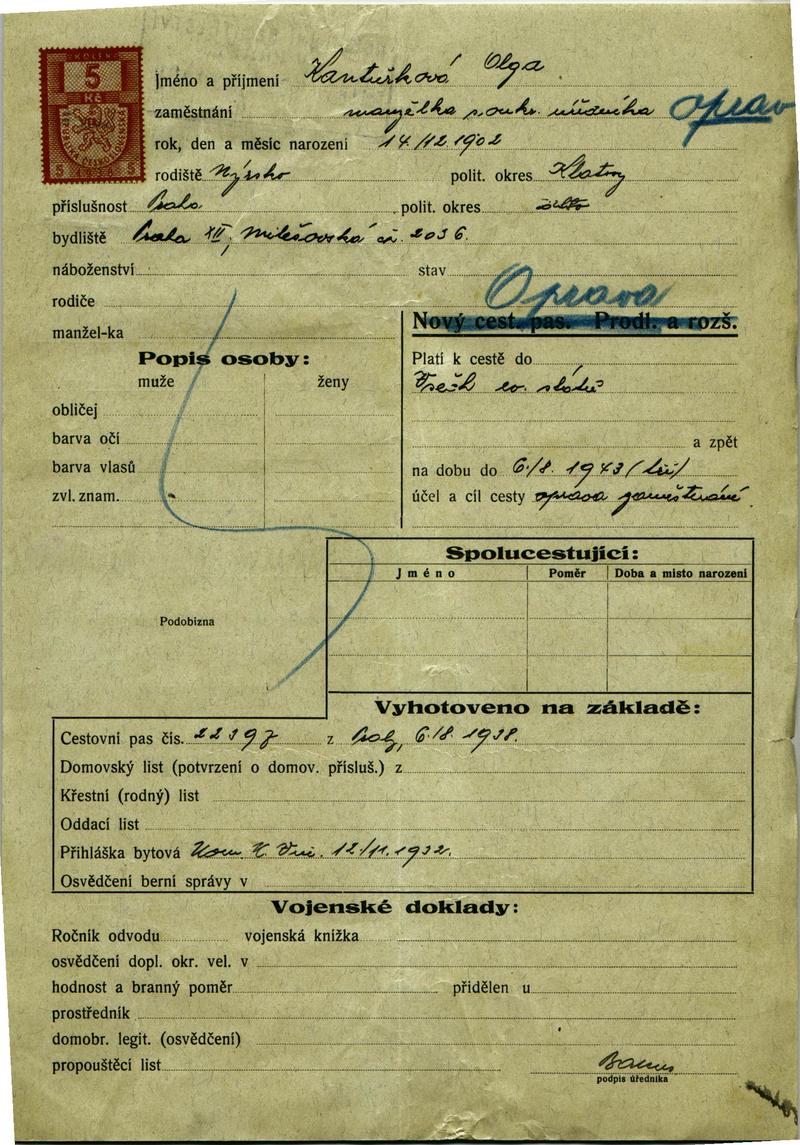 KOLEK
5
Kč
Jméno a příjmení Kanturková Olga
zaměstnání manželka soukr. úředníka oprav
rok, den a měsíc narození 14./12.1902
rodiště Nýrsko polit. okres Klatovy
příslušnost Praha polit. okres ditto
bydliště Praha XII, Milešovská čp. 2036.
náboženství stav
Oprava
rodiče
Nový cest. pas. Prodl. a rozš.
manžel-ka
Popis osoby:
muže ženy
Platí k cestě do
Všech ev. států
obličej
barva očí
a zpět
barva vlasů
na dobu do 6./8. 1943
zvl. znam.
účel a cíl cesty oprava zaměstnání
Spolucestující:
Jméno Poměr Doba a misto narození
Podobizna
Vyhotoveno na základě:
Cestovní pas čís. z 6./8. 1938.
Domovský list (potvrzení o domov. přísluš.) z
Křestní (rodný) list
Oddací list
Přihláška bytová 12/11.1932.
Osvědčení berní správy v
Vojenské doklady:
Ročník odvodu vojenská knížka
osvědčení dopl. okr. vel. v
hodnost a branný poměr přidělen u
prostředník
domobr. legit. (osvědčení)
propouštěcí list
podpis úředníka